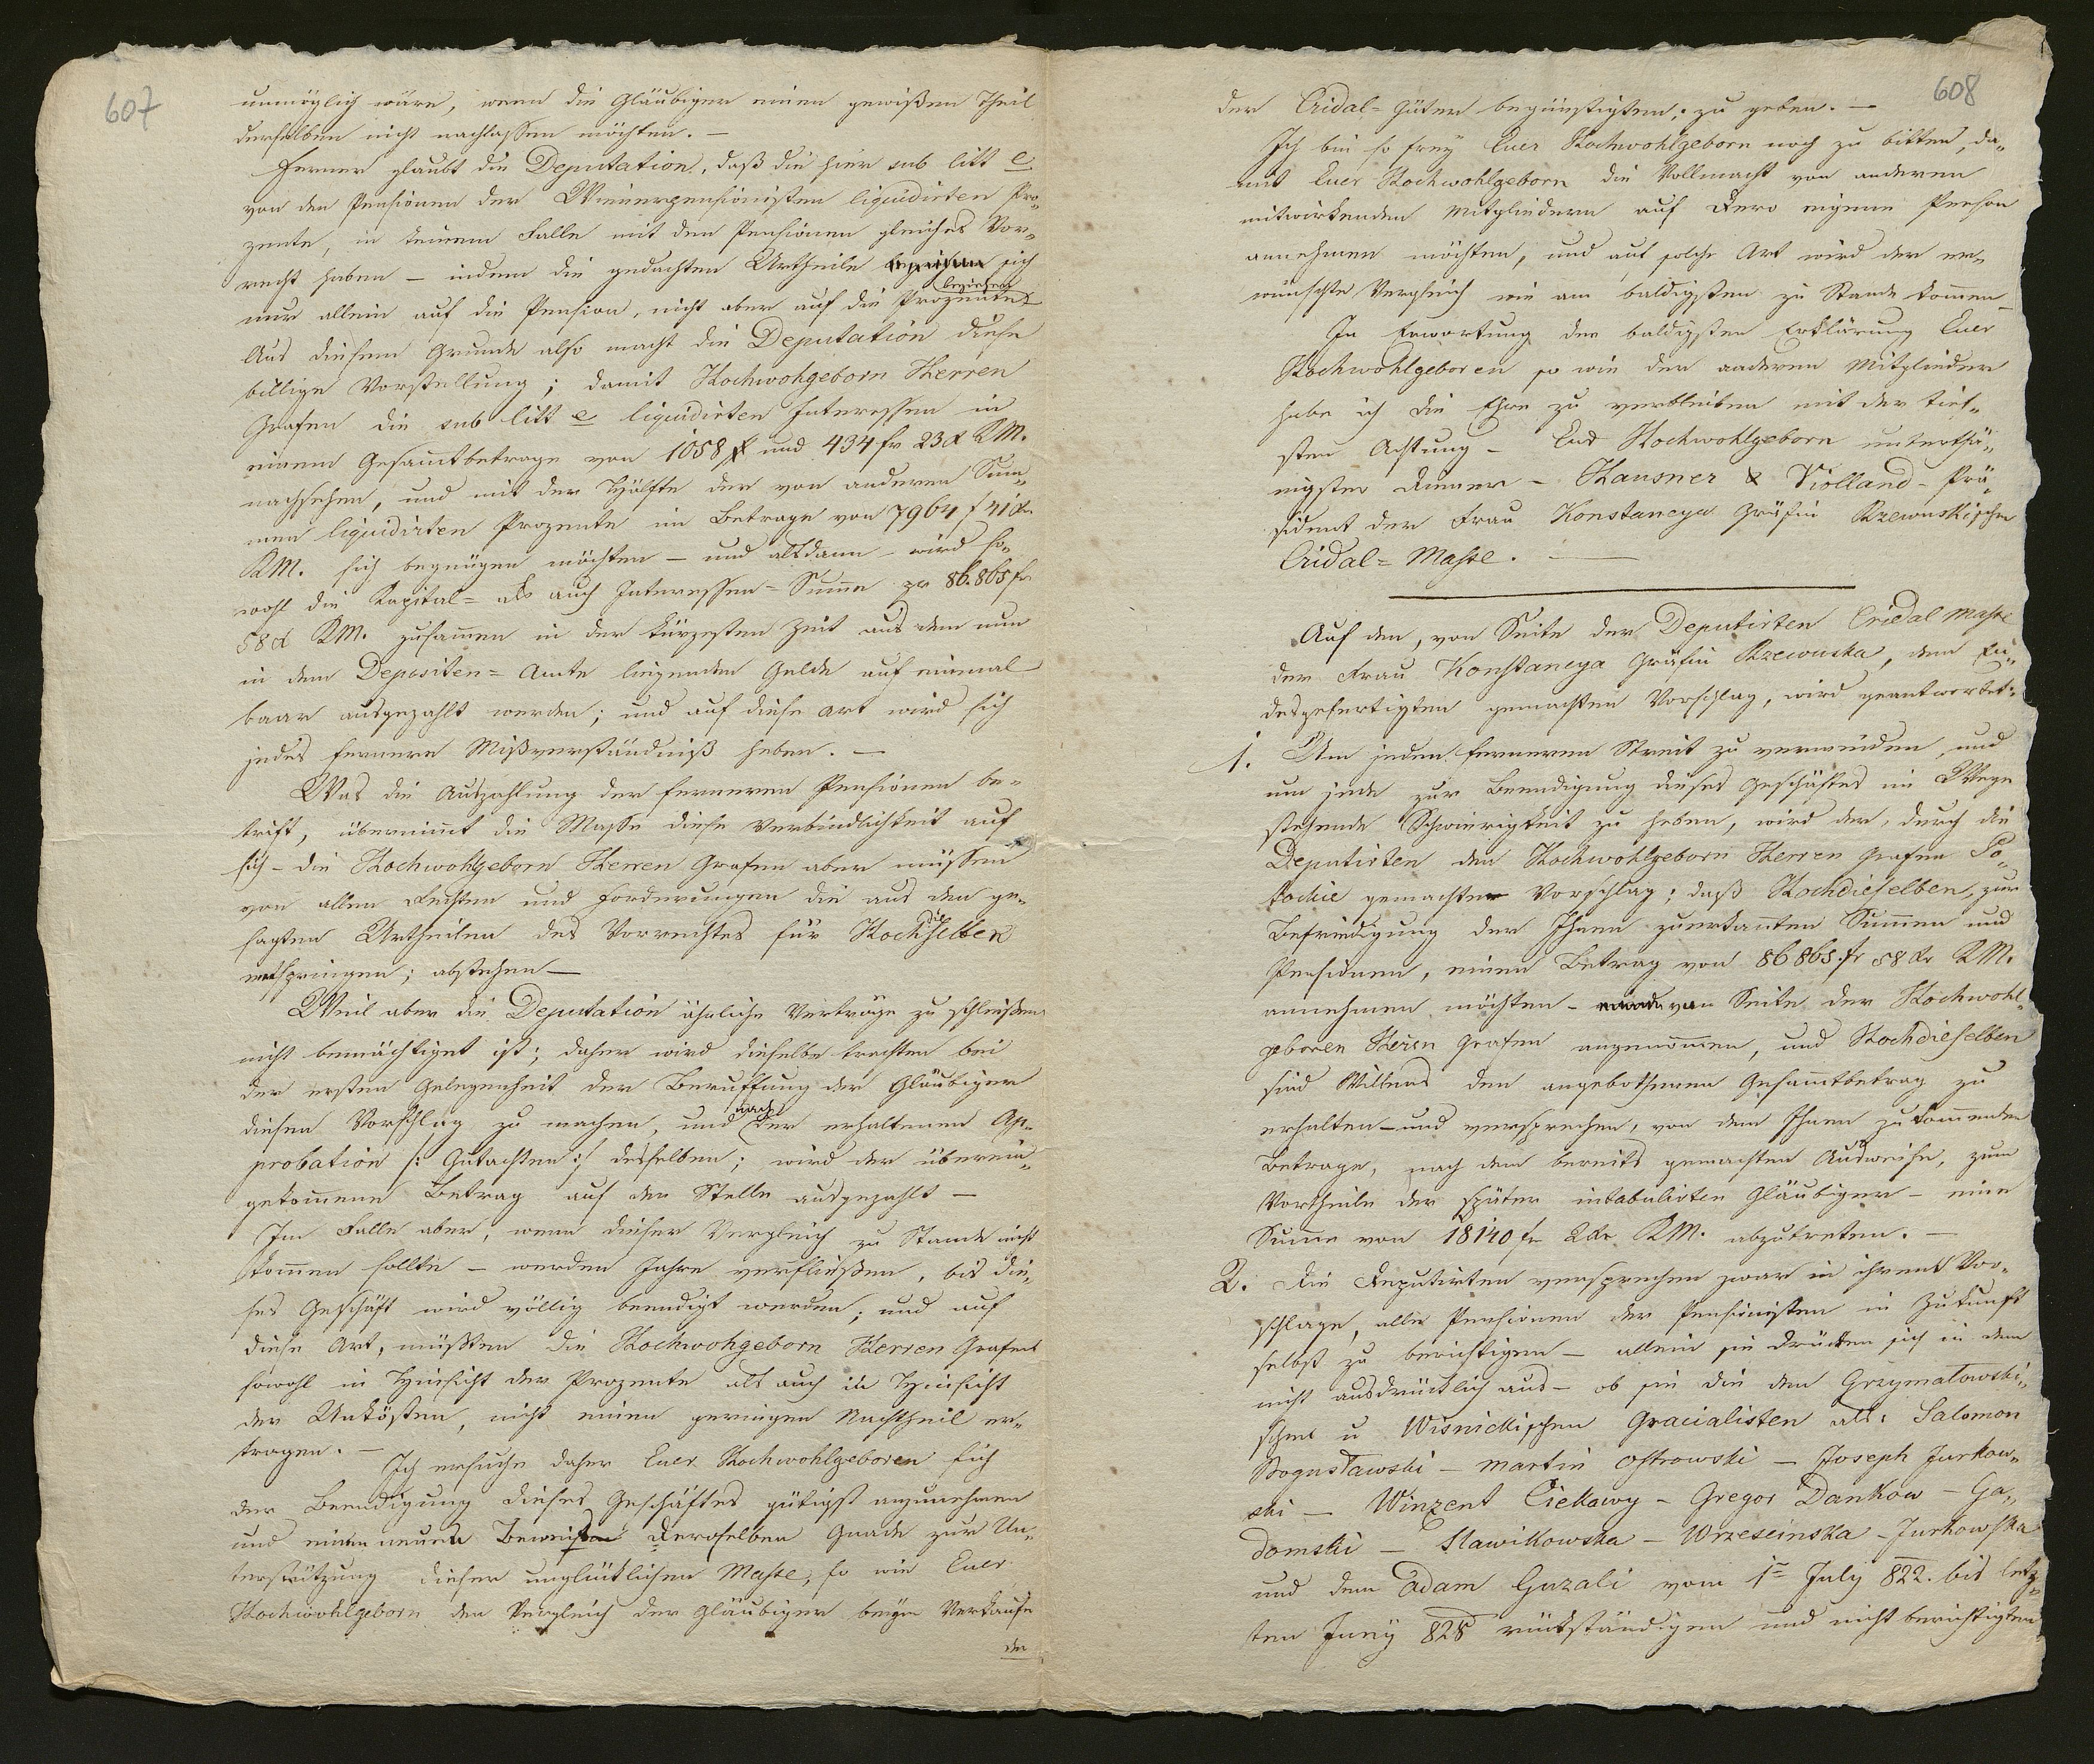 607
unmöglich wäre, wenn die Gläubiger einen gewißen Theil
derselben nicht nachlassen möchten. —
Ferner glaubt die Deputation, daß die hier sub litt e
von den Pensionen der Wienerpensionisten liquidirten Pro„
zente, in keinem Falle mit den Pensionen gleiches Vor„
recht haben – indem die gedachten Urtheile sich
beziehen
nur allein auf die Pension, nicht aber auf die Prozente
Aus diesem Grunde also macht die Deputation diese
billige Vorstellung; damit Hochwohgeborn Herren
Grafen die sub litt e liquidirten Interessen in
einem Gesammtbetrage von 1058 # und 434 fr 23 x KM.
nachsehen, und mit der Hälfte der von anderen Sum„
men liquidirten Prozente im Betrage von 7964 f 41 x
KM. sich begnügen möchten – und alsdann – wird so„
wohl die Kapital= als auch Interessen=Summe pr 86.865 fr
58 x KM. zusammen in der kürzesten Zeit aus dem nun
in dem Depositen=Amte liegenden Gelde auf einmal
baar ausgezahlt werden; und auf diese Art wird sich
jedes fernere Mißverständniß heben. —
Was die Auszahlung der ferneren Pensionen be„
trift, übernimmt die Masse diese Verbindlichkeit auf
sich – die Hochwohlgeborn Herren Grafen aber müssen
von allen Rechten und Forderungen die aus den ge„
sagten Urtheilen des Vorrechtes für Hochdieselben
entspringen; abstehen —
Weil aber die Deputation ähnliche Verträge zu schließen
nicht bemächtiget ist; daher wird dieselbe trachten bei
der ersten Gelegenheit der Beruffung der Gläubiger
diesen Vorschlag zu machen, und nach der erhaltenen Ap„
probation /: Gutachten :/ desselben; wird der überein„
gekommene Betrag auf der Stelle ausgezahlt —
Im Falle aber, wenn dieser Vergleich zu Stande nicht
kommen sollte – werden Jahre verfließen, bis die„
ses Geschäft wird völlig beendigt werden; und auf
diese Art, müßten die Hochwohgeborn Herren Grafen
sowohl in Hinsicht der Prozente als auch in Hinsicht
der Unkösten, nicht einen geringen Nachtheil er„
tragen. —
Ich ersuche daher Euer Hochwohlgeboren sich
der Beendigung dieses Geschäftes gütigst anzunehmen
und einen neuen Beweis Deroselben Gnade zur Un„
terstützung dieser unglücklichen Masse, so wie Euer
Hochwohlgeborn den Vergleich der Gläubiger beym Verkaufe
der
608
der Cridal=Güter begünstigten; zu geben. —
Ich bin so frey Euer Hochwohlgeborn noch zu bitten, da„
mit Euer Hochwohlgeborn die Vollmacht von anderen
mitwirkenden Mitgliedern auf Dero eigene Person
annehmen möchten, und auf solche Art wird der er„
wünschte Vergleich wie am baldigsten zu Stande kommen
In Erwartung der baldigsten Erklärung Euer
Hochwohlgeboren so wie der anderen Mitglieder
habe ich die Ehre zu verbleiben mit der tief„
sten Achtung – Euer Hochwohlgeborn unterthä„
nigster Diener – Hausner & Violland – Prä„
sident der Frau Konstancya Gräfin Rzewuskischen
Cridal=Masse. —
Auf den, von Seite der Deputirten Cridal Masse
der Frau Konstancya Gräfin Rzewuska, dem En„
desgefertigten gemachten Vorschlag, wird geantwortet:
1. Um jeden ferneren Streit zu vermeiden und
um jede zur Beendigung dieses Geschäftes im Wege
stehende Schwierigkeit zu heben, wird der, durch die
Deputirten den Hochwohlgeborn Herren Grafen Po„
tockie gemachter Vorschlag; daß Hochdieselben, zur
Befriedigung der Ihnen zuerkannten Summen und
Pensionen, einen Betrag von 86865 fr 58 xr KM.
annehmen möchten – von Seite der Hochwohl„
geboren Herrn Grafen angenommen, und Hochdieselben
sind Willens den angebothenen Gesammtbetrag zu
erhalten – und versprechen, von dem Ihnen zukommenden
Betrage, nach dem bereits gemachten Ausweise, zum
Vortheile der später intabulirten Gläubiger – eine
Summe von 18140 fr 2 xr KM. abzutreten. —
2. Die Deputirten versprechen zwar in ihrem Vor„
schlage, alle Pensionen der Pensionisten in Zukunft
selbst zu berichtigen – allein sie drücken sich in dem
nicht ausdrücklich aus – ob sie die den Grzymałowski„
schen u Wisnickischen Gracialisten als: Salomon
Bogusławski – Martin Ostrowski – Joseph Jurkow„
ski – Winzent Ciekawy – Gregor Dankow – Ga„
domski – Slawikowska – Wrzescinska – Jurkowska
und dem Adam Guzali vom 1ten July 822. bis letz„
ten Juny 828 rückständigen und nicht berichtigten